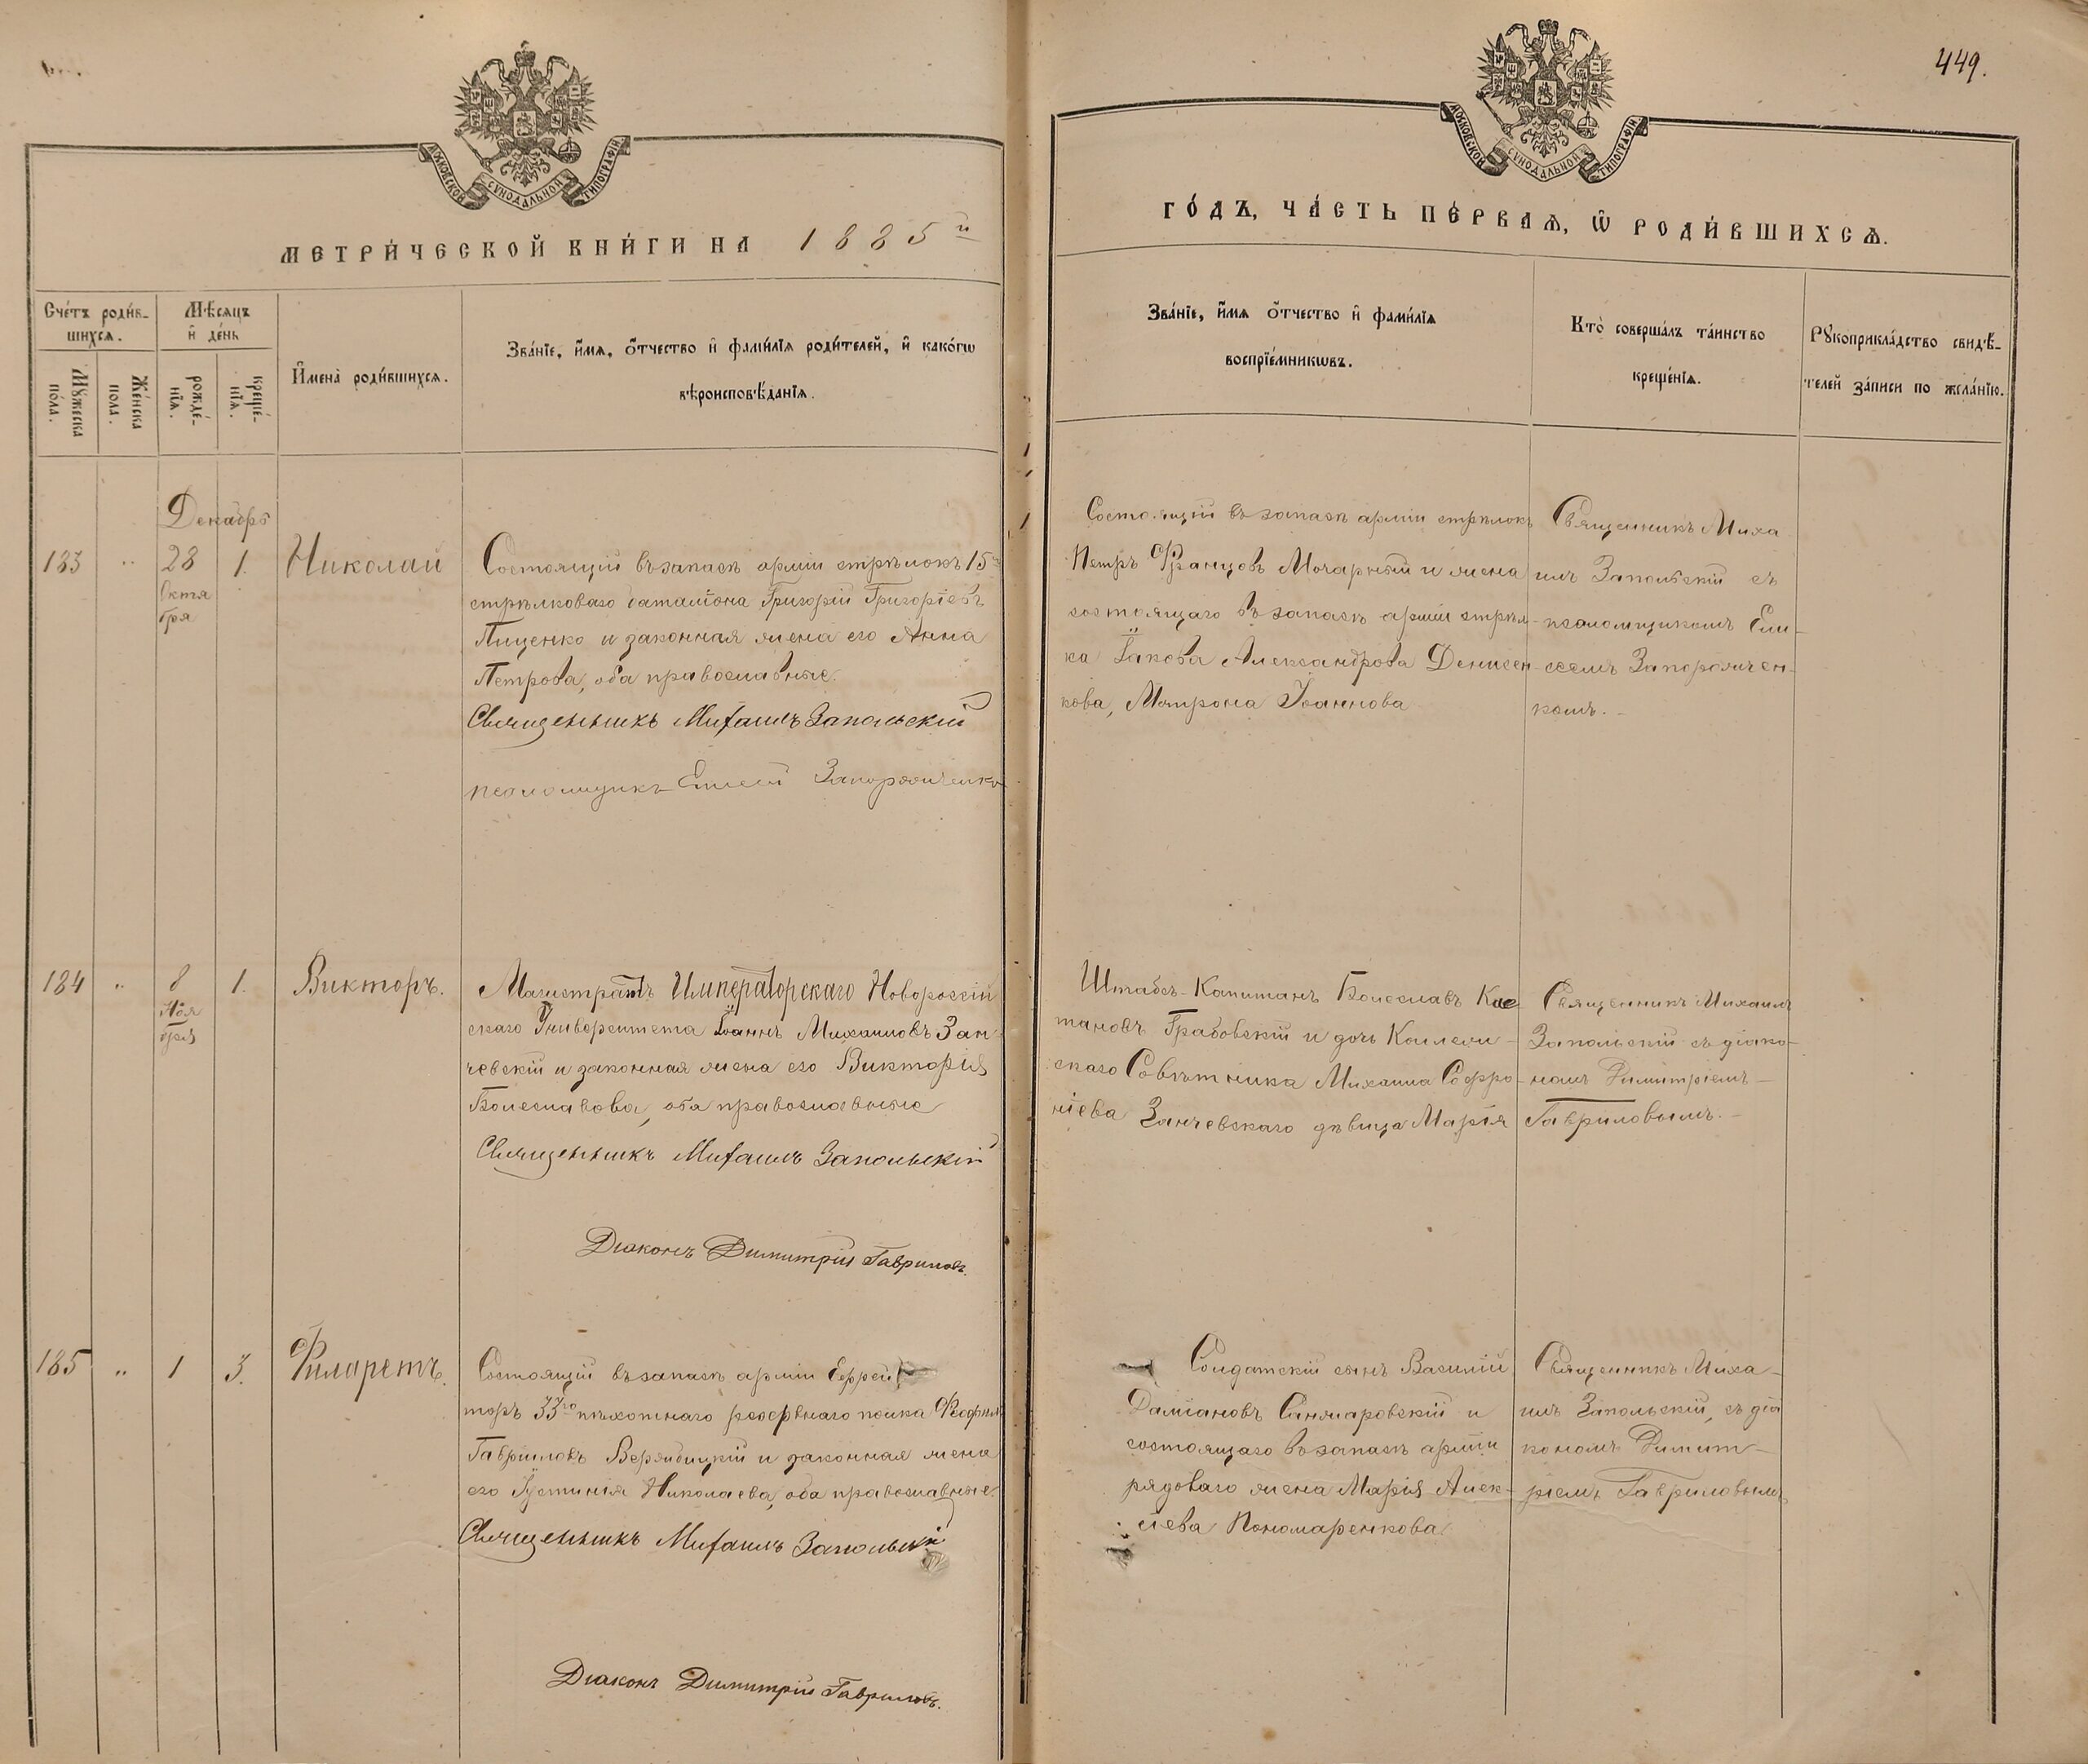 449.
МОСКОВСКОЙ СУНОДАЛЬНОЙ ТИПОГРАФІИ
МОСКОВСКОЙ СУНОДАЛЬНОЙ ТИПОГРАФІИ
МЕТРИ́ЧЕСКОЙ КНИ́ГИ НА 1885й
ГО́ДЪ, ЧА́СТЬ ПЕ́РВАѦ, Ѿ РОДИ́ВШИХСѦ.
Сче́тъ роди́в-
шихсѧ.
Мѣ́сѧцъ
и҆ де́нь
Мꙋ́жеска
по́ла.
Же́нска
пола.
рожде́-
нїѧ.
креще́-
нїѧ.
И҆мена̀ роди́вшихсѧ.
Зва́нїе, и҆́мѧ, ѻ҆́тчество и҆ фамилїѧ роди́телей, и҆ како́гѡ
вѣроисповѣ́данїѧ.
Зва́нїе, и҆́мѧ ѻ҆́тчество и҆ фами́лїѧ
воспрїе́мникѡвъ.
Кто̀ соверша́лъ та́инство
креще́нїѧ.
Рꙋкоприкла́дство свидѣ́-
телей за́писи по жела́нїю.
Декабрь
183 " 28 1. Николай
Октя
бря
Состоящій въ запасѣ арміи стрѣлокъ 15го
стрѣлковаго баталіона Григорій Григоріевъ
Пищенко и законная жена его Анна
Петрова, оба православные.
Священникъ Михаилъ Запольскій
псаломщикъ Елисей Запорожченко
Состоящій въ запасѣ арміи стрѣлокъ
Петръ Францовъ Мочарный и жена
состоящаго въ запасѣ арміи стрѣл-
ка Іакова Александрова Денисен-
кова, Матрона Іоаннова
Священникъ Миха
илъ Запольскій съ
псаломщикомъ Ели-
сеемъ Запорожчен-
комъ. -
184 " 8 1. Викторъ.
Ноя
бря
Магистрантъ Императорскаго Новороссій
скаго Университета Іоаннъ Михаиловъ Зан-
чевскій и законная жена его Викторія
Болеславова, оба православные
Священникъ Михаилъ Запольскій
Діаконъ Димитрій Гавриловъ.
Штабсъ-Капитанъ Болеславъ Кае
тановъ Грабовскій и дочь Коллеж-
скаго Совѣтника Михаила Софро-
ніева Занчевскаго дѣвица Марія
Священникъ Михаилъ
Запольскій съ діако-
номъ Димитріемъ -
Гавриловымъ. -
185 " 1 3. Филаретъ.
Состоящій въ запасѣ арміи Ефрей
торъ 33го пѣхотнаго резервнаго полка Ѳеофил
Гавриловъ Вержбицкій и законная жена
его Іустинія Николаева, оба православные.
Священникъ Михаилъ Запольскій
Діаконъ Димитрій Гавриловъ.
Солдатскій сынъ Василій
Даміановъ Санжаровскій и
состоящаго въ запасѣ арміи
рядоваго жена Марія Алек-
сіева Пономаренкова
Священникъ Миха-
илъ Запольскій, съ діа
кономъ Димит-
ріемъ Гавриловымъ